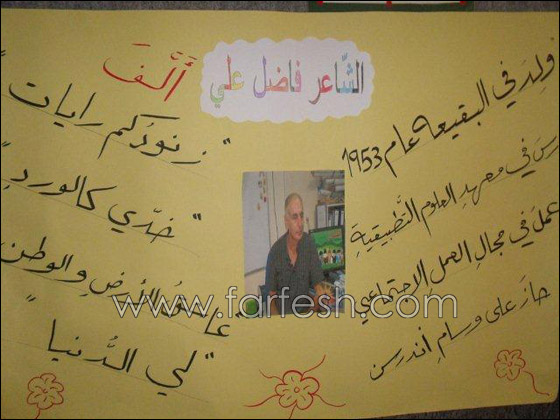 الشّاعر فاضل علي
وُلِدَ في البقيعه عام 1953
درس في معهدِ العلوم التَّطبيقيةِ
عملَ في مجالِ العملِ الاجتماعي
حازَ على وسامِ أندرسن
أَلَّفَ
"زنودكم رايات"
"خدّي كالوردِ"
"عاشقُ الأرضِ والوطن"
"لي الدُّنيا"
www.farfesh.com